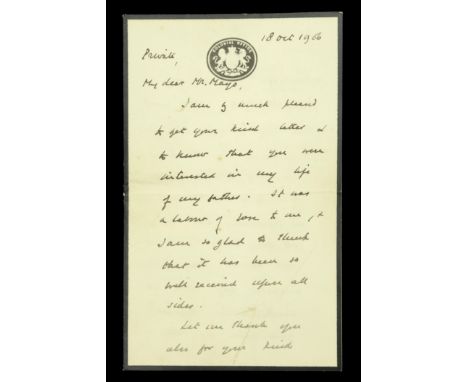 18 Oct 1906
COLONIAL OFFICE
Private,
My dear Mr. Mayo,
I am so much pleased
to get your kind letter &
to know that you were
interested in my life
of my father. It was
a labour of love to me, &
I am so glad to think
that it has been so
well received upon all
sides.
Let me thank you
also for your kind